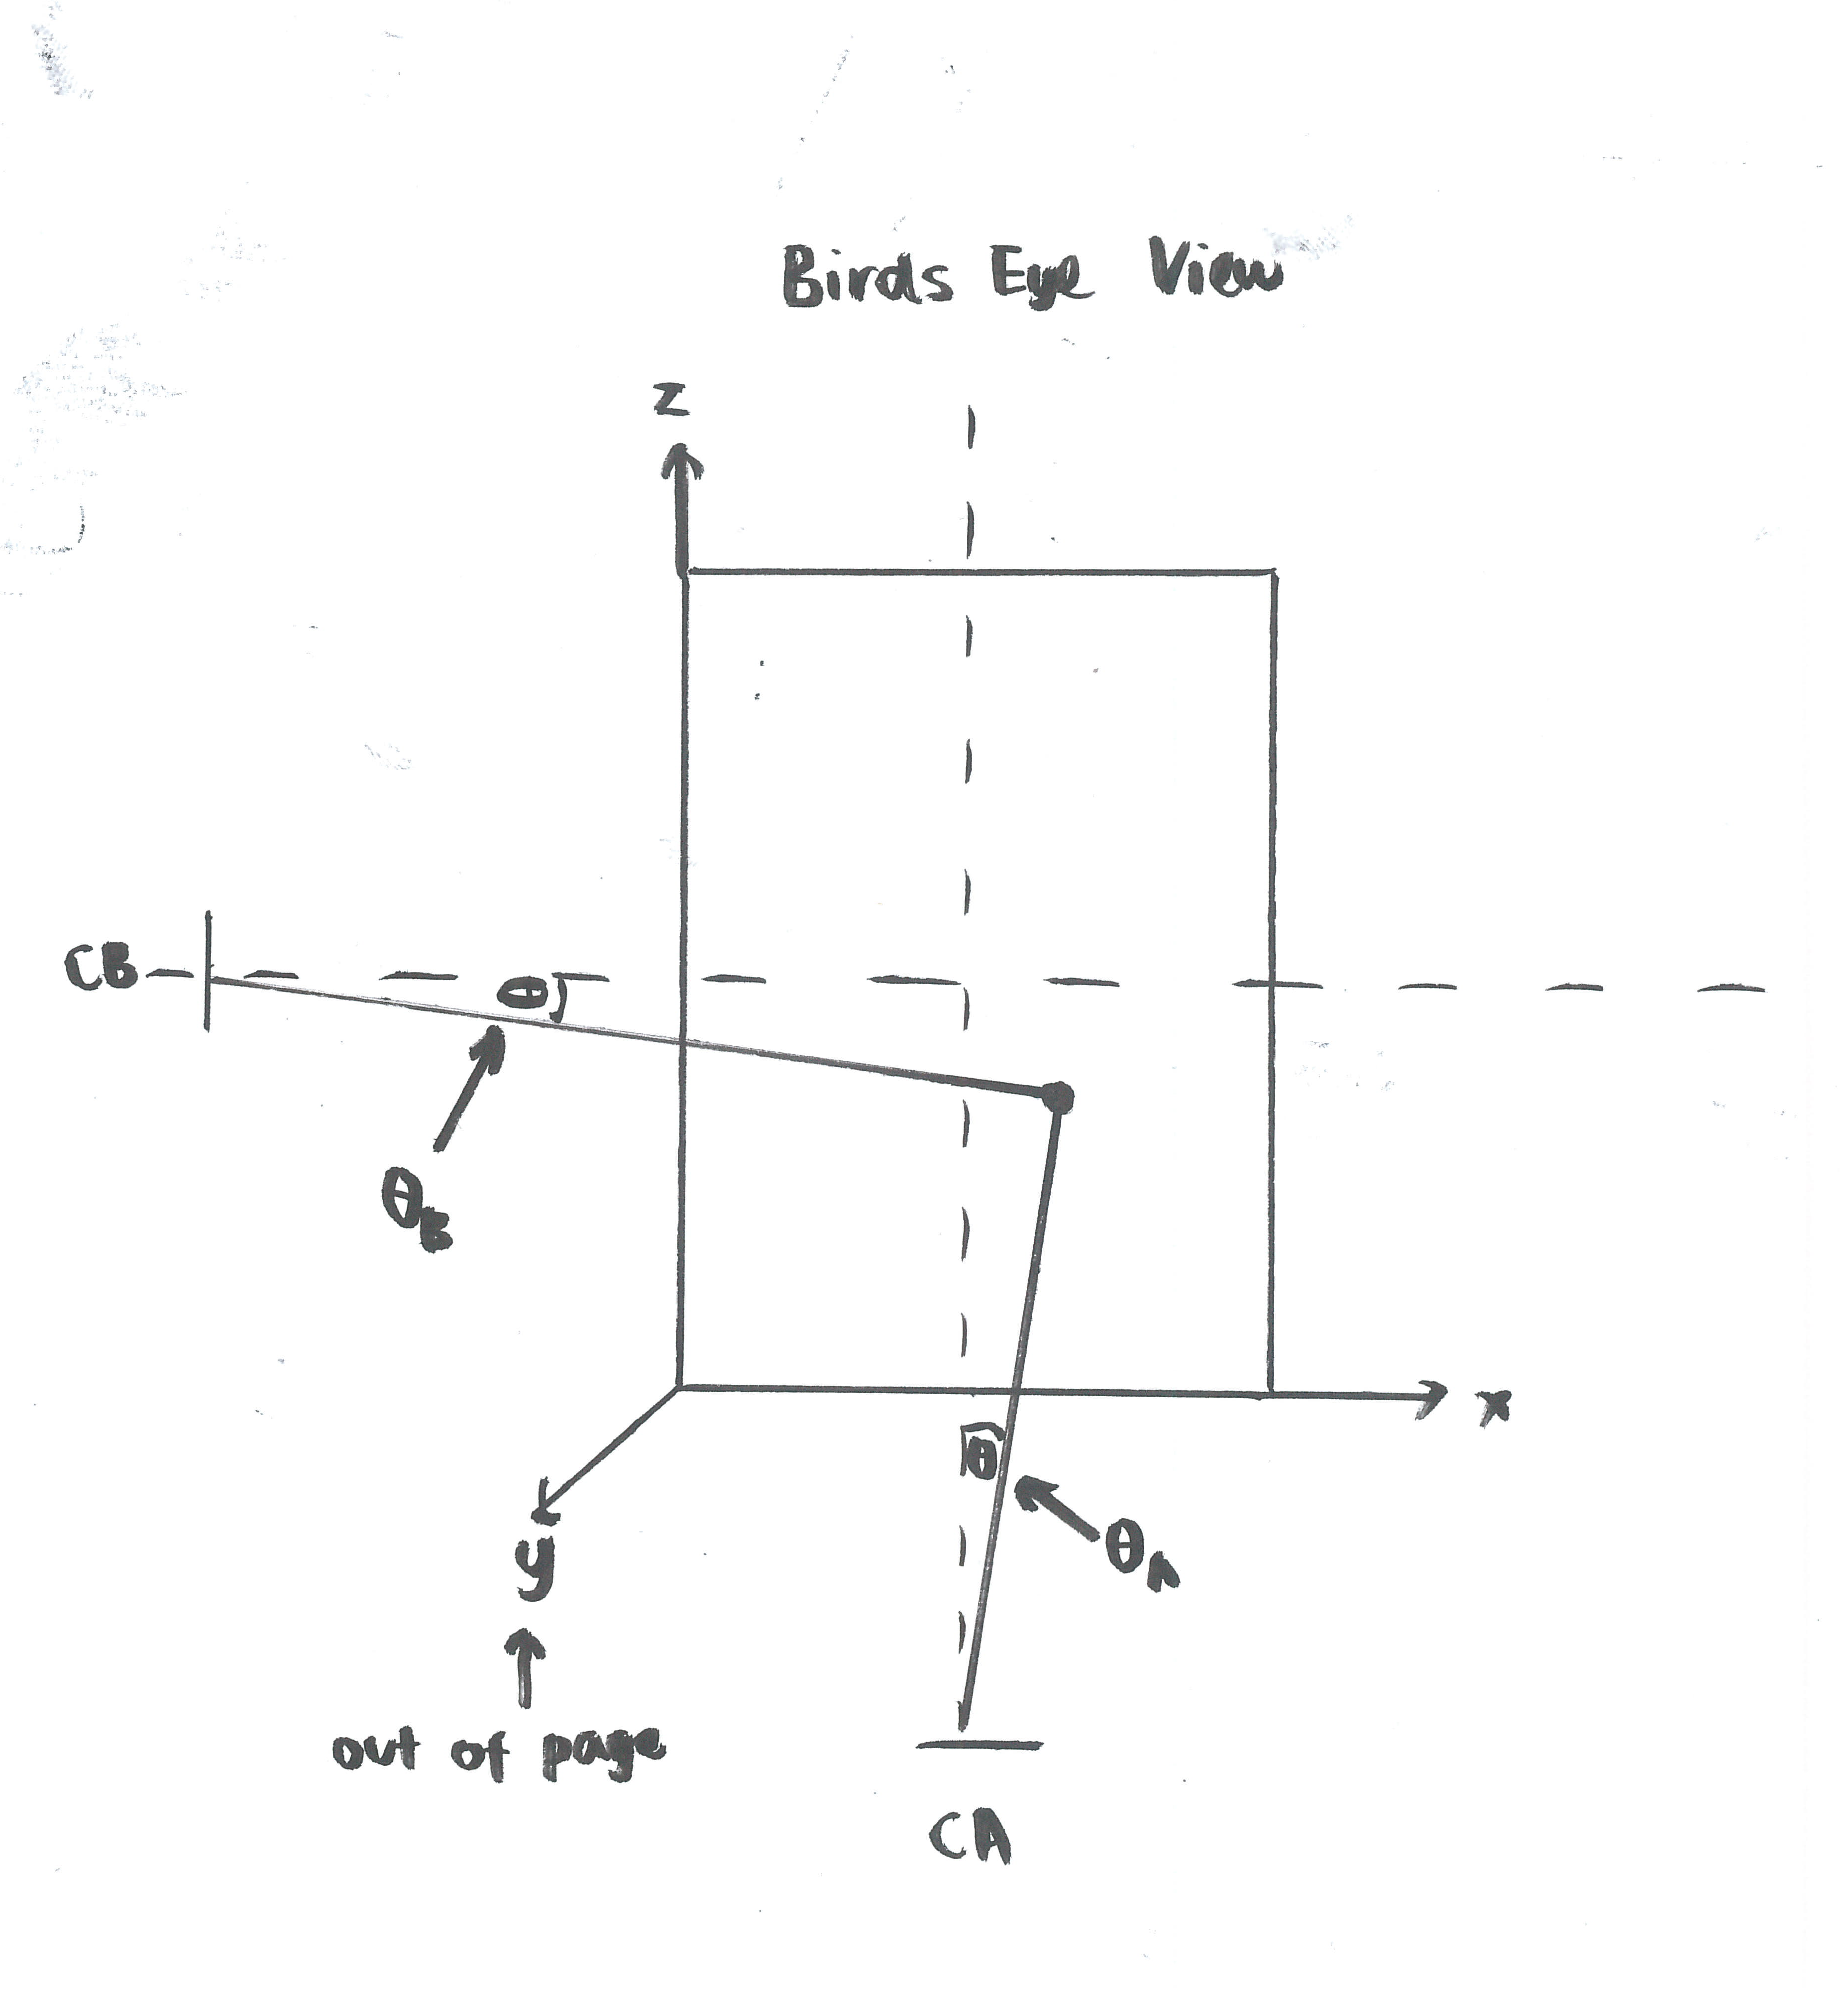 Birds Eye View
z
CB
θ
θB
x
θ
θA
y
out of page
CA